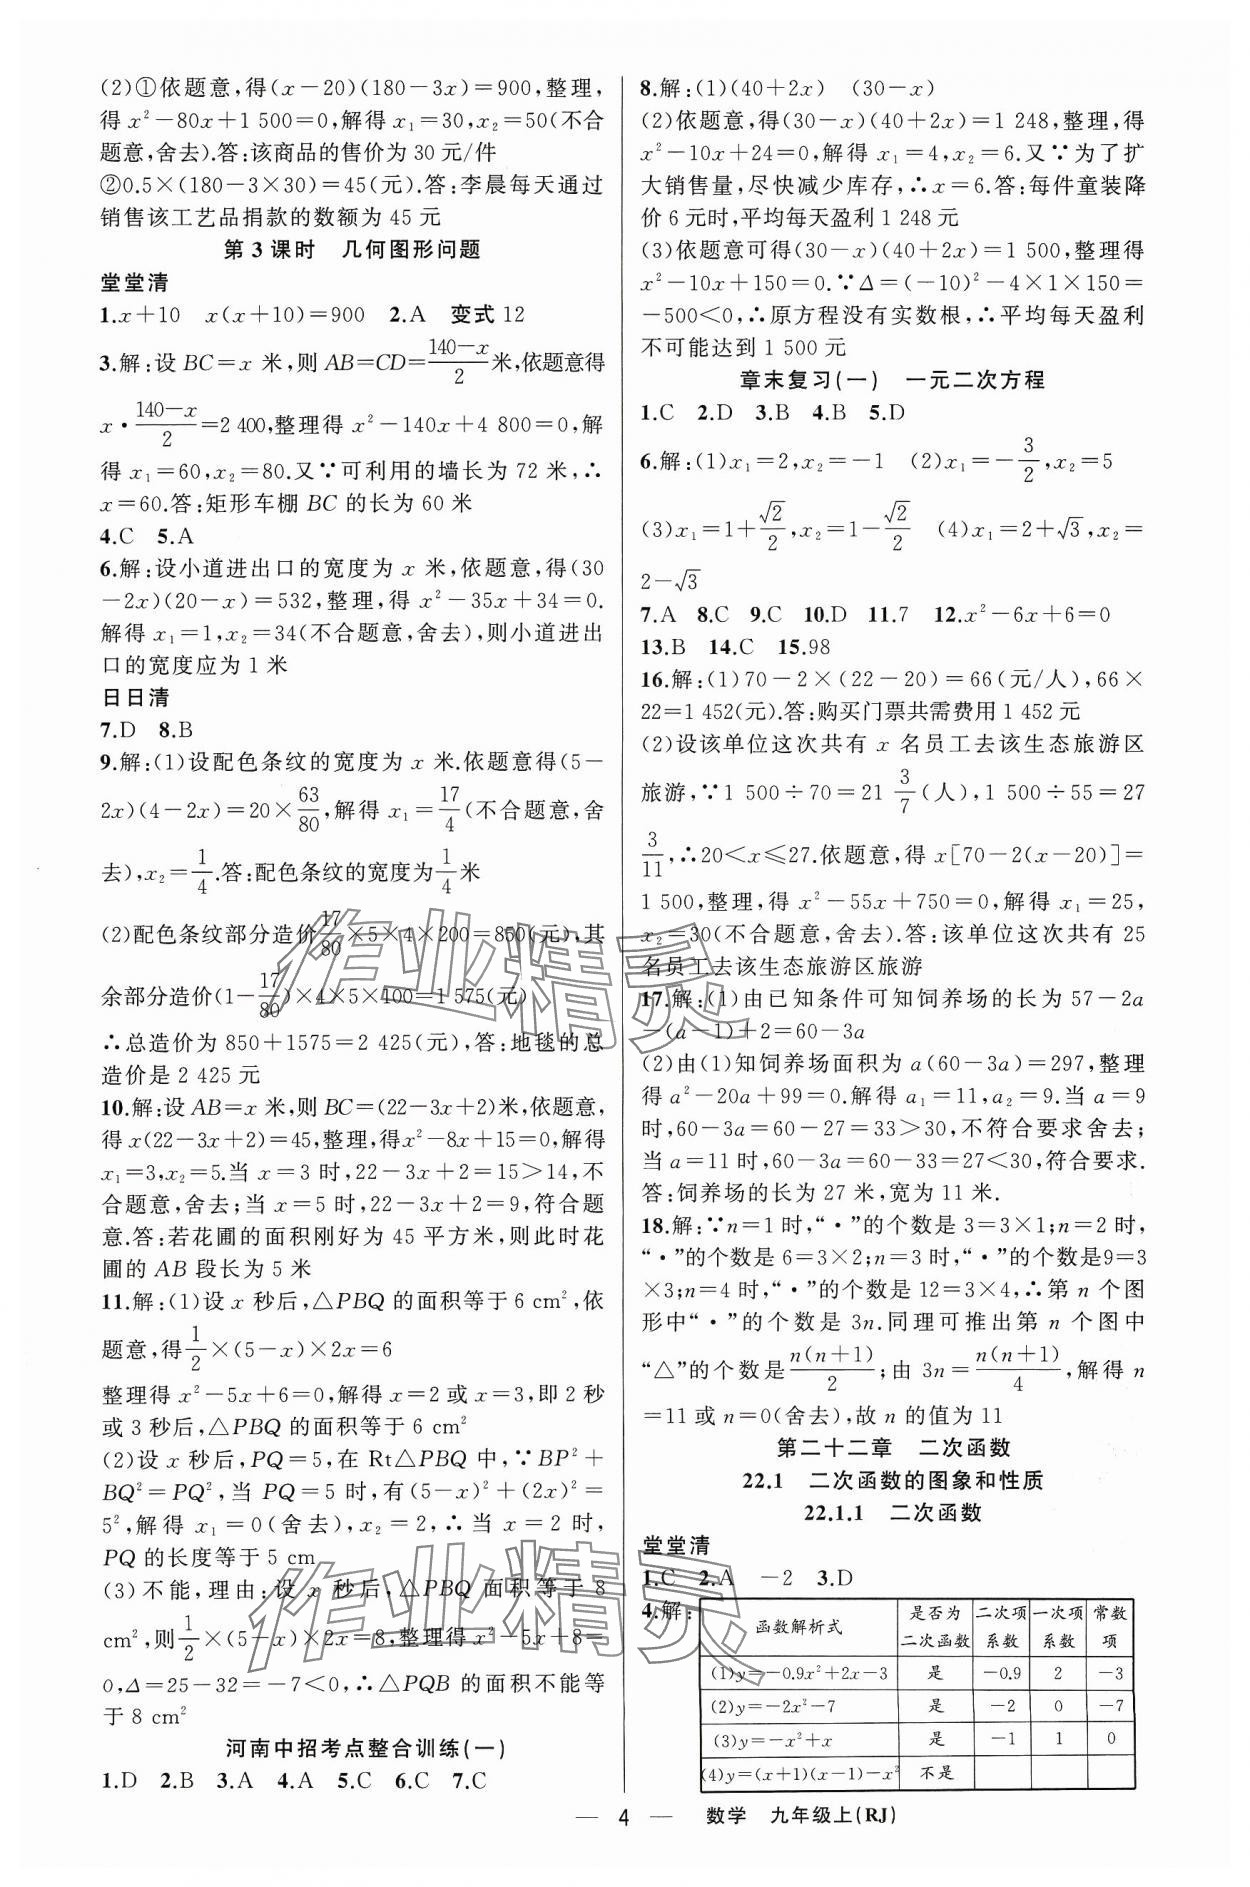 (2)①依题意,得(x-20)(180-3x)=900,整理,
得 x²-80x+1 500=0,解得 x₁=30,x₂=50(不合
题意,舍去).答:该商品的售价为 30 元/件
②0.5×(180-3×30)=45(元).答:李晨每天通过
销售该工艺品捐款的数额为 45 元
第 3 课时 几何图形问题
堂堂清
1.x+10 x(x+10)=900 2.A 变式 12
3.解:设 BC=x 米,则 AB=CD=(140-x)/2米,依题意得
x·(140-x)/2=2 400,整理得 x²-140x+4 800=0,解
得 x₁=60,x₂=80.又∵可利用的墙长为 72 米,∴
x=60.答:矩形车棚 BC 的长为 60 米
4.C 5.A
6.解:设小道进出口的宽度为 x 米,依题意,得(30
-2x)(20-x)=532,整理,得 x²-35x+34=0.
解得 x₁=1,x₂=34(不合题意,舍去),则小道进出
口的宽度应为 1 米
日日清
7.D 8.B
9.解:(1)设配色条纹的宽度为 x 米.依题意得(5-
2x)(4-2x)=20×63/80,解得 x₁=17/4(不合题意,舍
去),x₂=1/4.答:配色条纹的宽度为1/4米
(2)配色条纹部分造价17/80×5×4×200=850(元),其
余部分造价(1-17/80)×4×5×400=1 575(元)
∴总造价为 850+1575=2 425(元),答:地毯的总
造价是 2 425 元
10.解:设 AB=x 米,则 BC=(22-3x+2)米,依题意,
得 x(22-3x+2)=45,整理,得x²-8x+15=0,解得
x₁=3,x₂=5.当 x=3 时,22-3x+2=15>14,不
合题意,舍去;当 x=5 时,22-3x+2=9,符合题
意.答:若花圃的面积刚好为 45 平方米,则此时花
圃的 AB 段长为 5 米
11.解:(1)设 x 秒后,△PBQ 的面积等于 6 cm²,依
题意,得1/2×(5-x)×2x=6
整理得 x²-5x+6=0,解得 x=2 或 x=3,即 2 秒
或 3 秒后,△PBQ 的面积等于 6 cm²
(2)设 x 秒后,PQ=5,在 Rt△PBQ 中,∵BP²+
BQ²=PQ²,当 PQ=5 时,有(5-x)²+(2x)²=
5²,解得 x₁=0(舍去),x₂=2,∴当 x=2 时,
PQ 的长度等于 5 cm
(3)不能,理由:设 x 秒后,△PBQ 面积等于 8
cm²,则1/2×(5-x)×2x=8,整理得 x²-5x+8=
0,Δ=25-32=-7<0,∴△PQB 的面积不能等
于 8 cm²
河南中招考点整合训练(一)
1.D 2.B 3.A 4.A 5.C 6.C 7.C
8.解:(1)(40+2x) (30-x)
(2)依题意,得(30-x)(40+2x)=1 248,整理,得
x²-10x+24=0,解得 x₁=4,x₂=6.又∵为了扩
大销售量,尽快减少库存,∴x=6.答:每件童装降
价 6 元时,平均每天盈利 1 248 元
(3)依题意可得(30-x)(40+2x)=1 500,整理得
x²-10x+150=0.∵Δ=(-10)²-4×1×150=
-500<0,∴原方程没有实数根,∴平均每天盈利
不可能达到 1 500 元
章末复习(一) 一元二次方程
1.C 2.D 3.B 4.B 5.D
6.解:(1)x₁=2,x₂=-1 (2)x₁=-3/2,x₂=5
(3)x₁=1+√2/2,x₂=1-√2/2 (4)x₁=2+√3,x₂=
2-√3
7.A 8.C 9.C 10.D 11.7 12.x²-6x+6=0
13.B 14.C 15.98
16.解:(1)70-2×(22-20)=66(元/人),66×
22=1 452(元).答:购买门票共需费用 1 452 元
(2)设该单位这次共有 x 名员工去该生态旅游区
旅游,∵1 500÷70=21 3/7(人),1 500÷55=27
3/11,∴20<x≤27.依题意,得 x[70-2(x-20)]=
1 500,整理,得 x²-55x+750=0,解得 x₁=25,
x₂=30(不合题意,舍去).答:该单位这次共有 25
名员工去该生态旅游区旅游
17.解:(1)由已知条件可知饲养场的长为 57-2a
-(a-1)+2=60-3a
(2)由(1)知饲养场面积为 a(60-3a)=297,整理
得 a²-20a+99=0.解得 a₁=11,a₂=9.当 a=9
时,60-3a=60-27=33>30,不符合要求舍去;
当 a=11 时,60-3a=60-33=27<30,符合要求.
答:饲养场的长为 27 米,宽为 11 米.
18.解:∵n=1 时,“·”的个数是 3=3×1;n=2 时,
“·”的个数是 6=3×2;n=3 时,“·”的个数是9=3
×3;n=4 时,“·”的个数是 12=3×4,∴第 n 个图
形中“·”的个数是 3n.同理可推出第 n 个图中
“△”的个数是n(n+1)/2;由 3n=n(n+1)/4,解得 n
=11 或 n=0(舍去),故 n 的值为 11
第二十二章 二次函数
22.1 二次函数的图象和性质
22.1.1 二次函数
堂堂清
1.C 2.A -2 3.D
4.解:
函数解析式 是否为二次函数 二次项系数 一次项系数 常数项
(1)y=-0.9x²+2x-3 是 -0.9 2 -3
(2)y=-2x²-7 是 -2 0 -7
(3)y=-x²+x 是 -1 1 0
(4)y=(x+1)(x-1)-x² 不是
— 4 — 数学 九年级上(RJ)
作业精灵
作业精灵